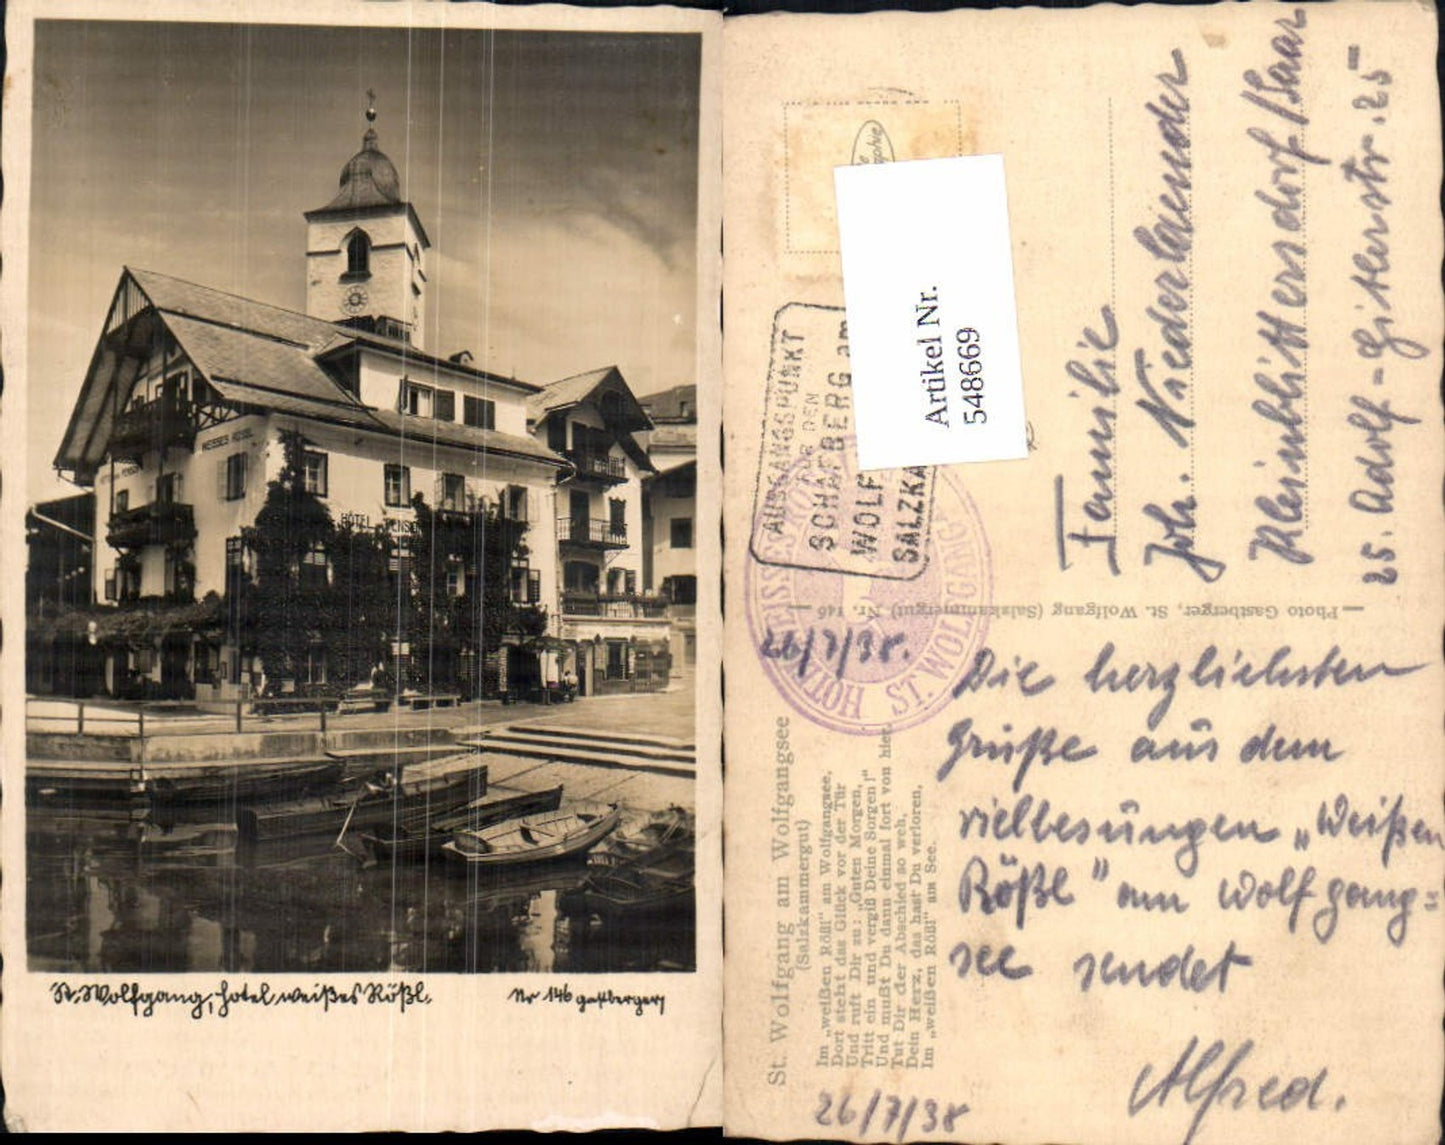 WEISSES RÖSSL
HOTEL PENSION
St. Wolfgang, Hotel weißes Rößl.
Nr 146 Gastberger
Artikel Nr.
548669
AUSGANGSPUNKT
FÜR DEN
SCHAFBERG am
WOLF
SALZKA
HOTEL WEISSES RÖ
ST. WOLFGANG
26/7/38.
Familie
Joh. Niederlaender
Kleinblittersdorf/Saar
25. Adolf-Hitlerstr. 25
Photo Gastberger, St. Wolfgang (Salzkammergut) Nr. 146
Die herzlichsten
Grüße aus dem
vielbesungen „Weißen
Rößl" am Wolfgang=
see sendet
Alfred.
St. Wolfgang am Wolfgangsee
(Salzkammergut)
Im „weißen Rößl" am Wolfgangsee,
Dort steht das Glück vor der Tür
Und ruft Dir zu: „Guten Morgen,
Tritt ein und vergiß Deine Sorgen!"
Und mußt Du dann einmal fort von hier,
Tut Dir der Abschied so weh,
Dein Herz, das hast Du verloren,
Im „weißen Rößl" am See.
26/7/38